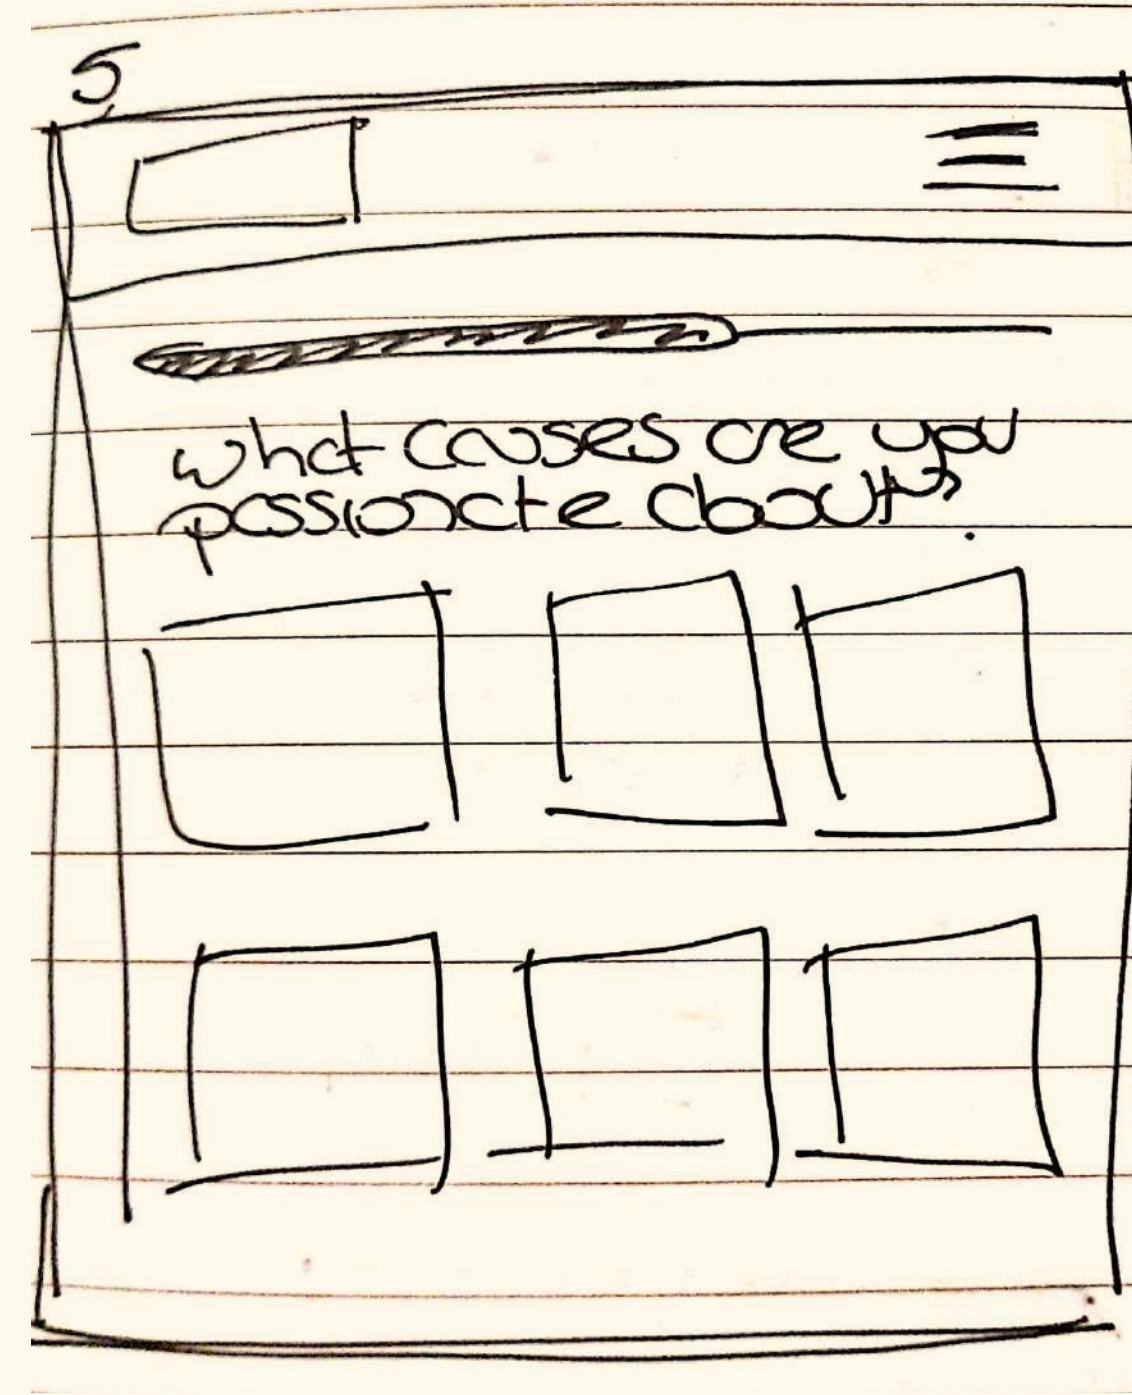 5
what causes are you
passionate about?